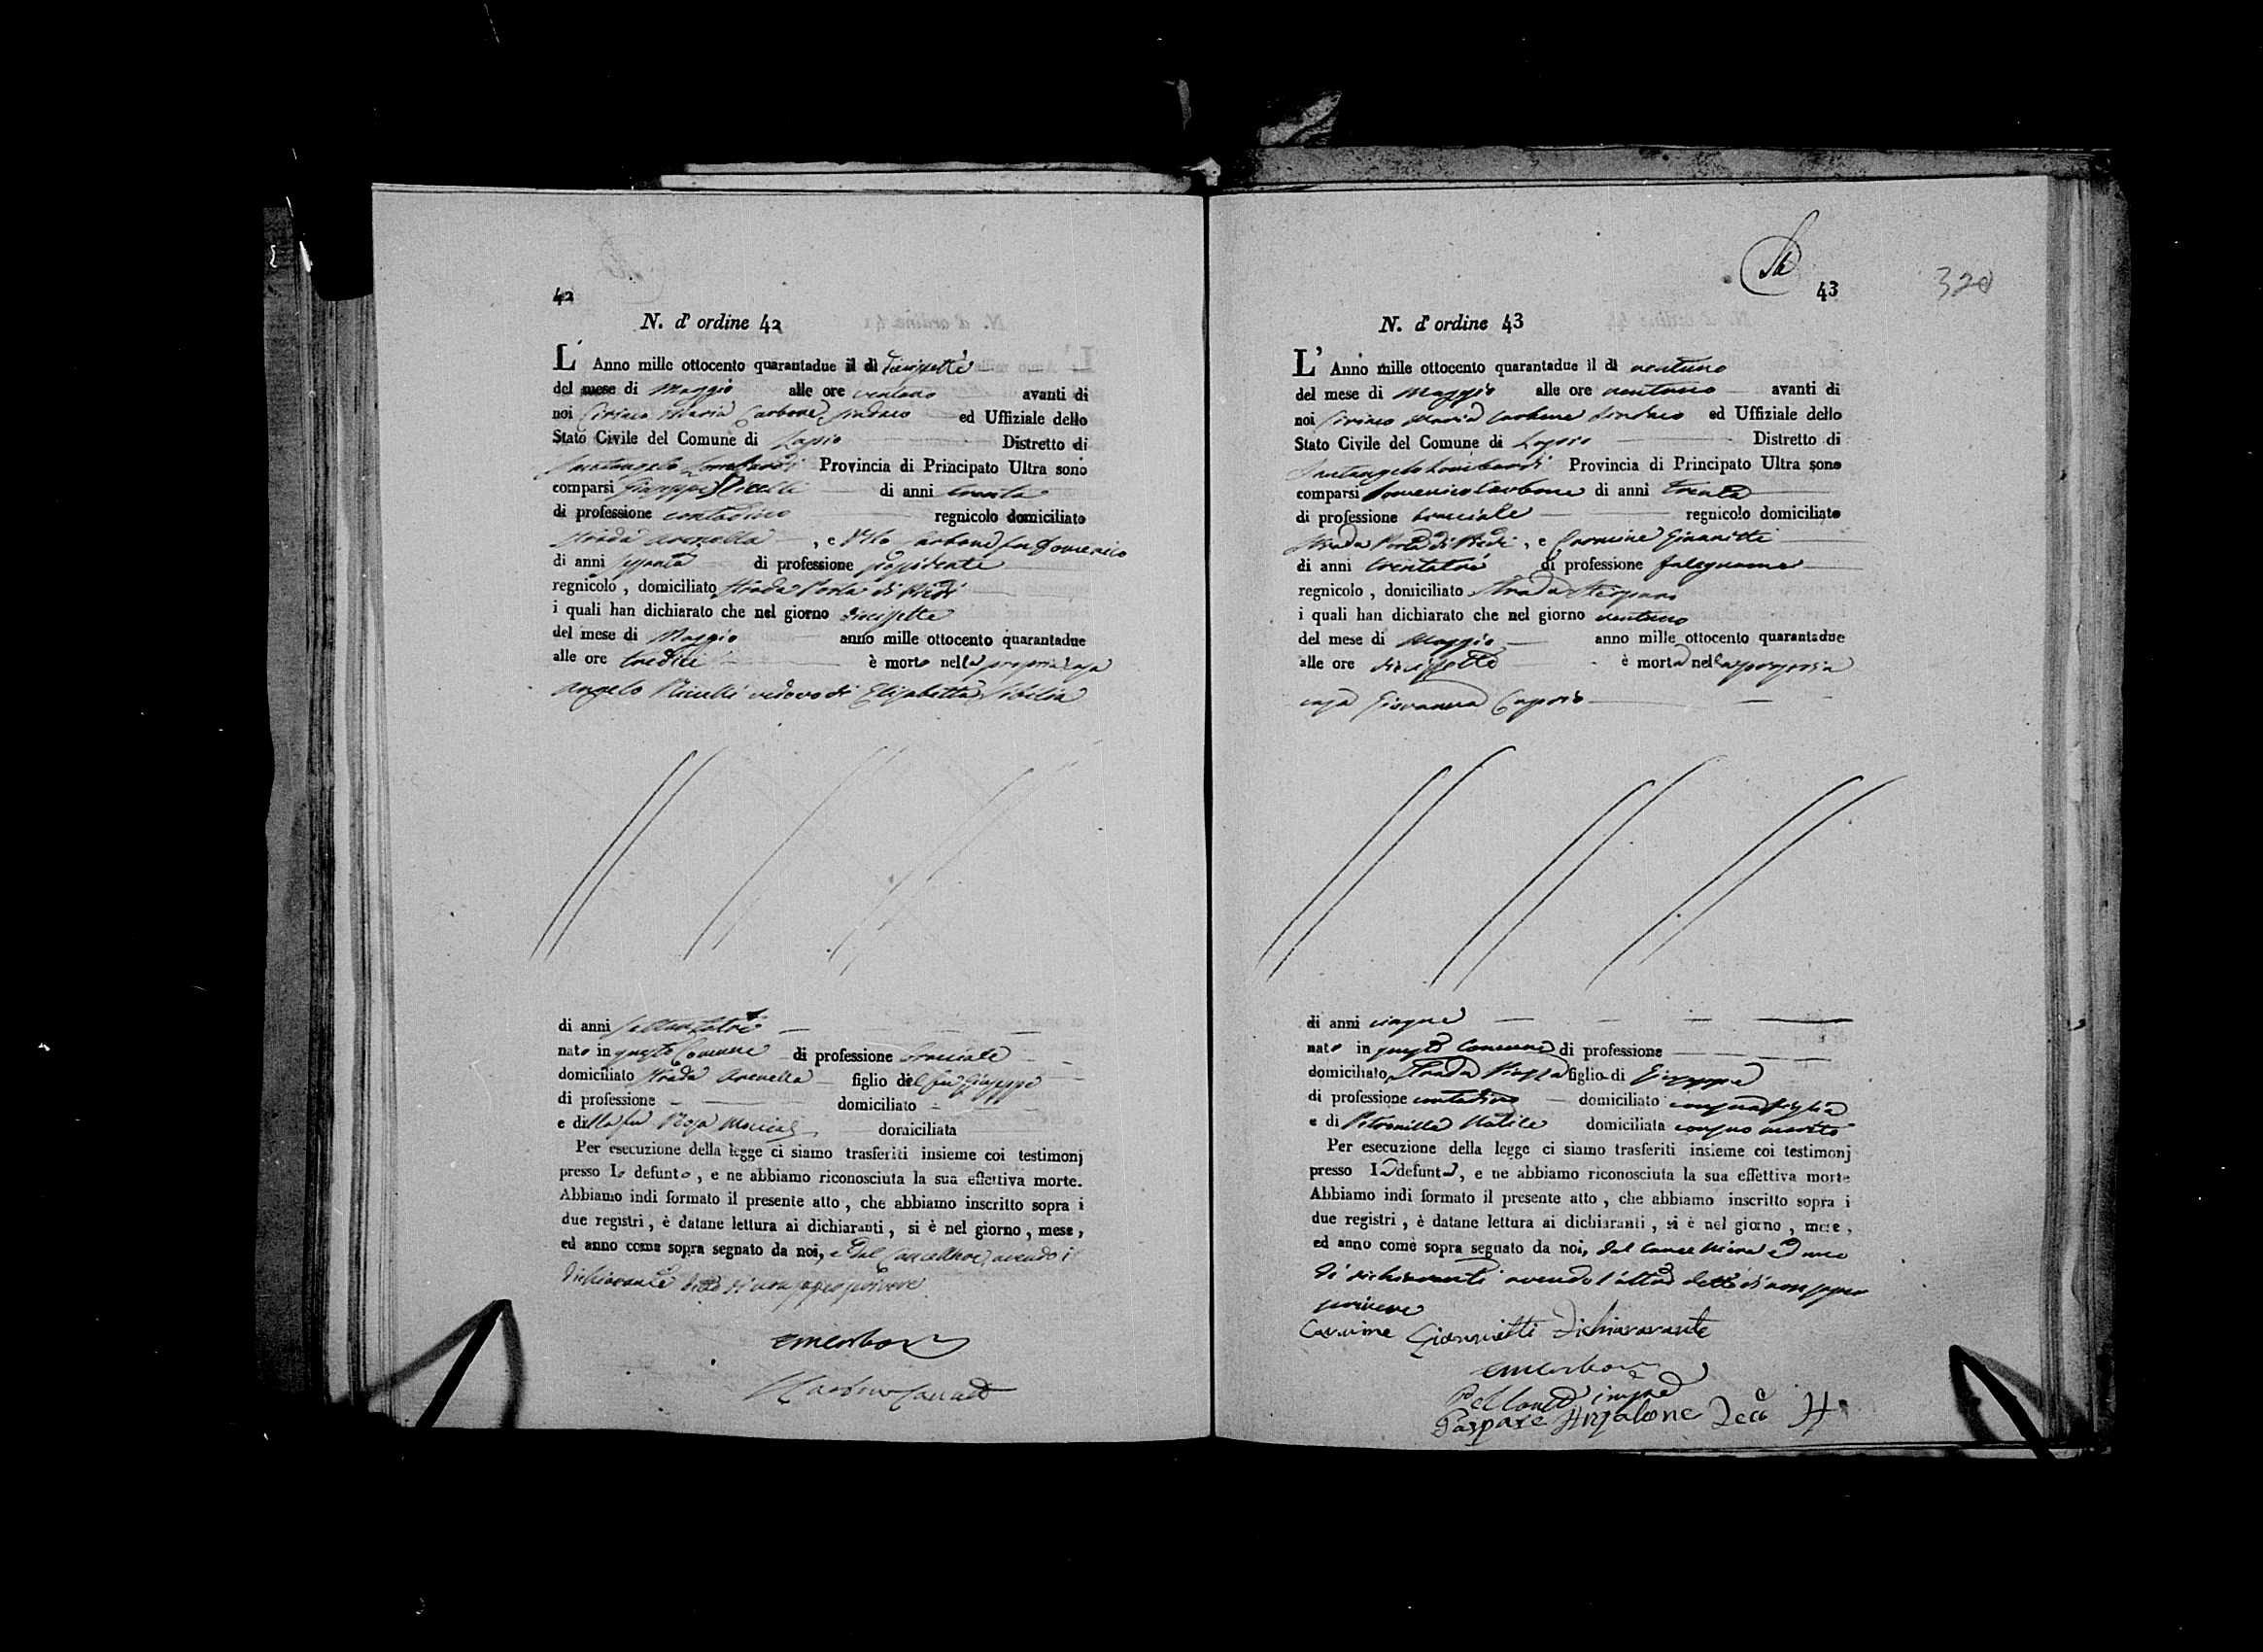 42
N. d' ordine 42
L' Anno mille ottocento quarantadue il di diecissette
del mese di Maggio alle ore ventuno avanti di
noi Ciriaco Maria Carbone Sindaco ed Uffiziale dello
Stato Civile del Comune di Lapio Distretto di
Santangelo Lombardi Provincia di Principato Ultra sono
comparsi Giuseppe di anni trenta
di professione contadino regnicolo domiciliato
strada arenella , e Vito Carbone fu Domenico
di anni sessanta di professione possidente
regnicolo , domiciliato strada Porta di Piedi
i quali han dichiarato che nel giorno diecissette
del mese di Maggio anno mille ottocento quarantadue
alle ore tredici è morto nella propria casa
Angelo vedovo di Elisabetta Sibilia
di anni settantatre
nato in questo Comune di professione bracciale
domiciliato strada Arenella figlio del fu Giuseppe
di professione domiciliato
e della fu Rosa domiciliata
Per esecuzione della legge ci siamo trasferiti insieme coi testimonj
presso Lo defunto , e ne abbiamo riconosciuta la sua effettiva morte.
Abbiamo indi formato il presente atto , che abbiamo inscritto sopra i
due registri , è datane lettura ai dichiaranti , si è nel giorno , mese ,
ed anno come sopra segnato da noi, e dal Cancelliere, avendo i
dichiaranti detto di non saper scrivere
43
320
N. d' ordine 43
L' Anno mille ottocento quarantadue il di ventuno
del mese di Maggio alle ore ventuno avanti di
noi Ciriaco Maria Carbone Sindaco ed Uffiziale dello
Stato Civile del Comune di Lapio Distretto di
Santangelo Lombardi Provincia di Principato Ultra sono
comparsi Domenico Carbone di anni trenta
di professione bracciale regnicolo domiciliato
strada Porta di Piedi , e Carmine Giannitti
di anni trentatre di professione falegname
regnicolo , domiciliato strada
i quali han dichiarato che nel giorno ventuno
del mese di Maggio anno mille ottocento quarantadue
alle ore diecissette è morta nella propria
casa Giovanna Caprio
di anni cinque
nato in questo Comune di professione
domiciliato strada Piazza figlio di Giuseppe
di professione contadino domiciliato con sua figlia
e di Petronilla Natile domiciliata con suo marito
Per esecuzione della legge ci siamo trasferiti insieme coi testimonj
presso La defunta , e ne abbiamo riconosciuta la sua effettiva morte
Abbiamo indi formato il presente atto , che abbiamo inscritto sopra i
due registri , è datane lettura ai dichiaranti , si è nel giorno , mese ,
ed anno come sopra segnato da noi, dal Cancelliere ed uno
di dichiaranti avendo l'altro detto di non saper
scrivere
Carmine Giannitti dichiarante
Gaspare